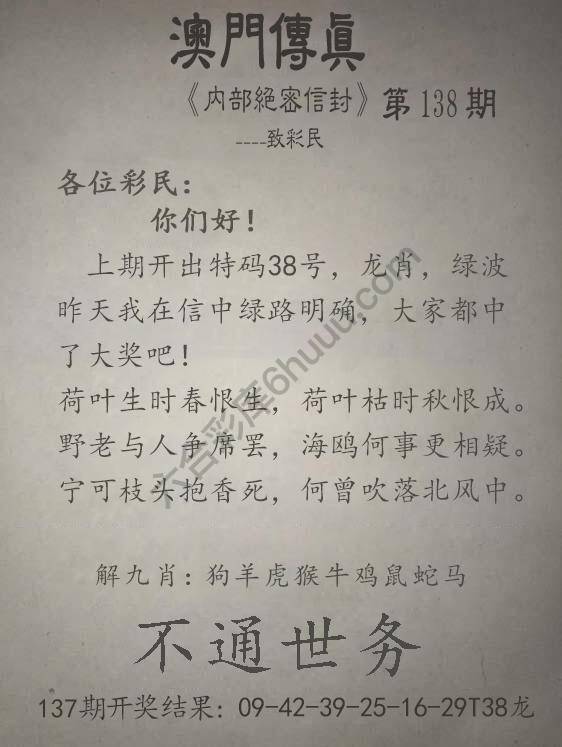 澳門傳眞
《内部絕密信封》第138期
----致彩民
各位彩民：
你们好！
上期开出特码38号，龙肖，绿波
昨天我在信中绿路明确，大家都中
了大奖吧！
荷叶生时春恨生，荷叶枯时秋恨成。
野老与人争席罢，海鸥何事更相疑。
宁可枝头抱香死，何曾吹落北风中。
六合彩库6huuu.com
解九肖：狗羊虎猴牛鸡鼠蛇马
不通世务
137期开奖结果：09-42-39-25-16-29T38龙